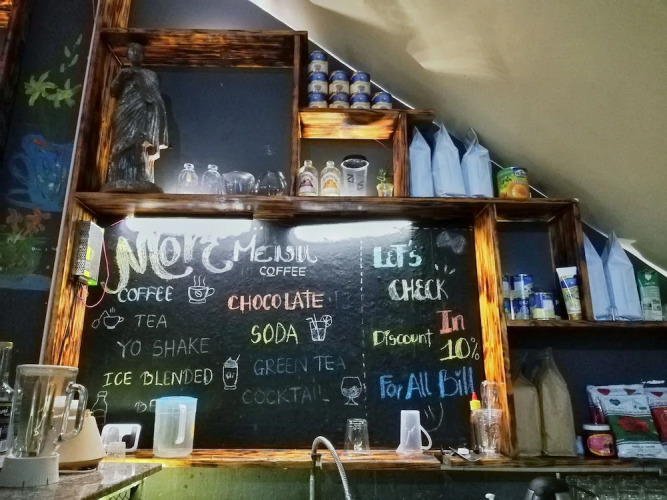 More Menu
COFFEE
COFFEE
TEA
YO SHAKE
ICE BLENDED
CHOCOLATE
SODA
GREEN TEA
COCKTAIL
LET'S
CHECK
In
Discount 10%
For All Bill